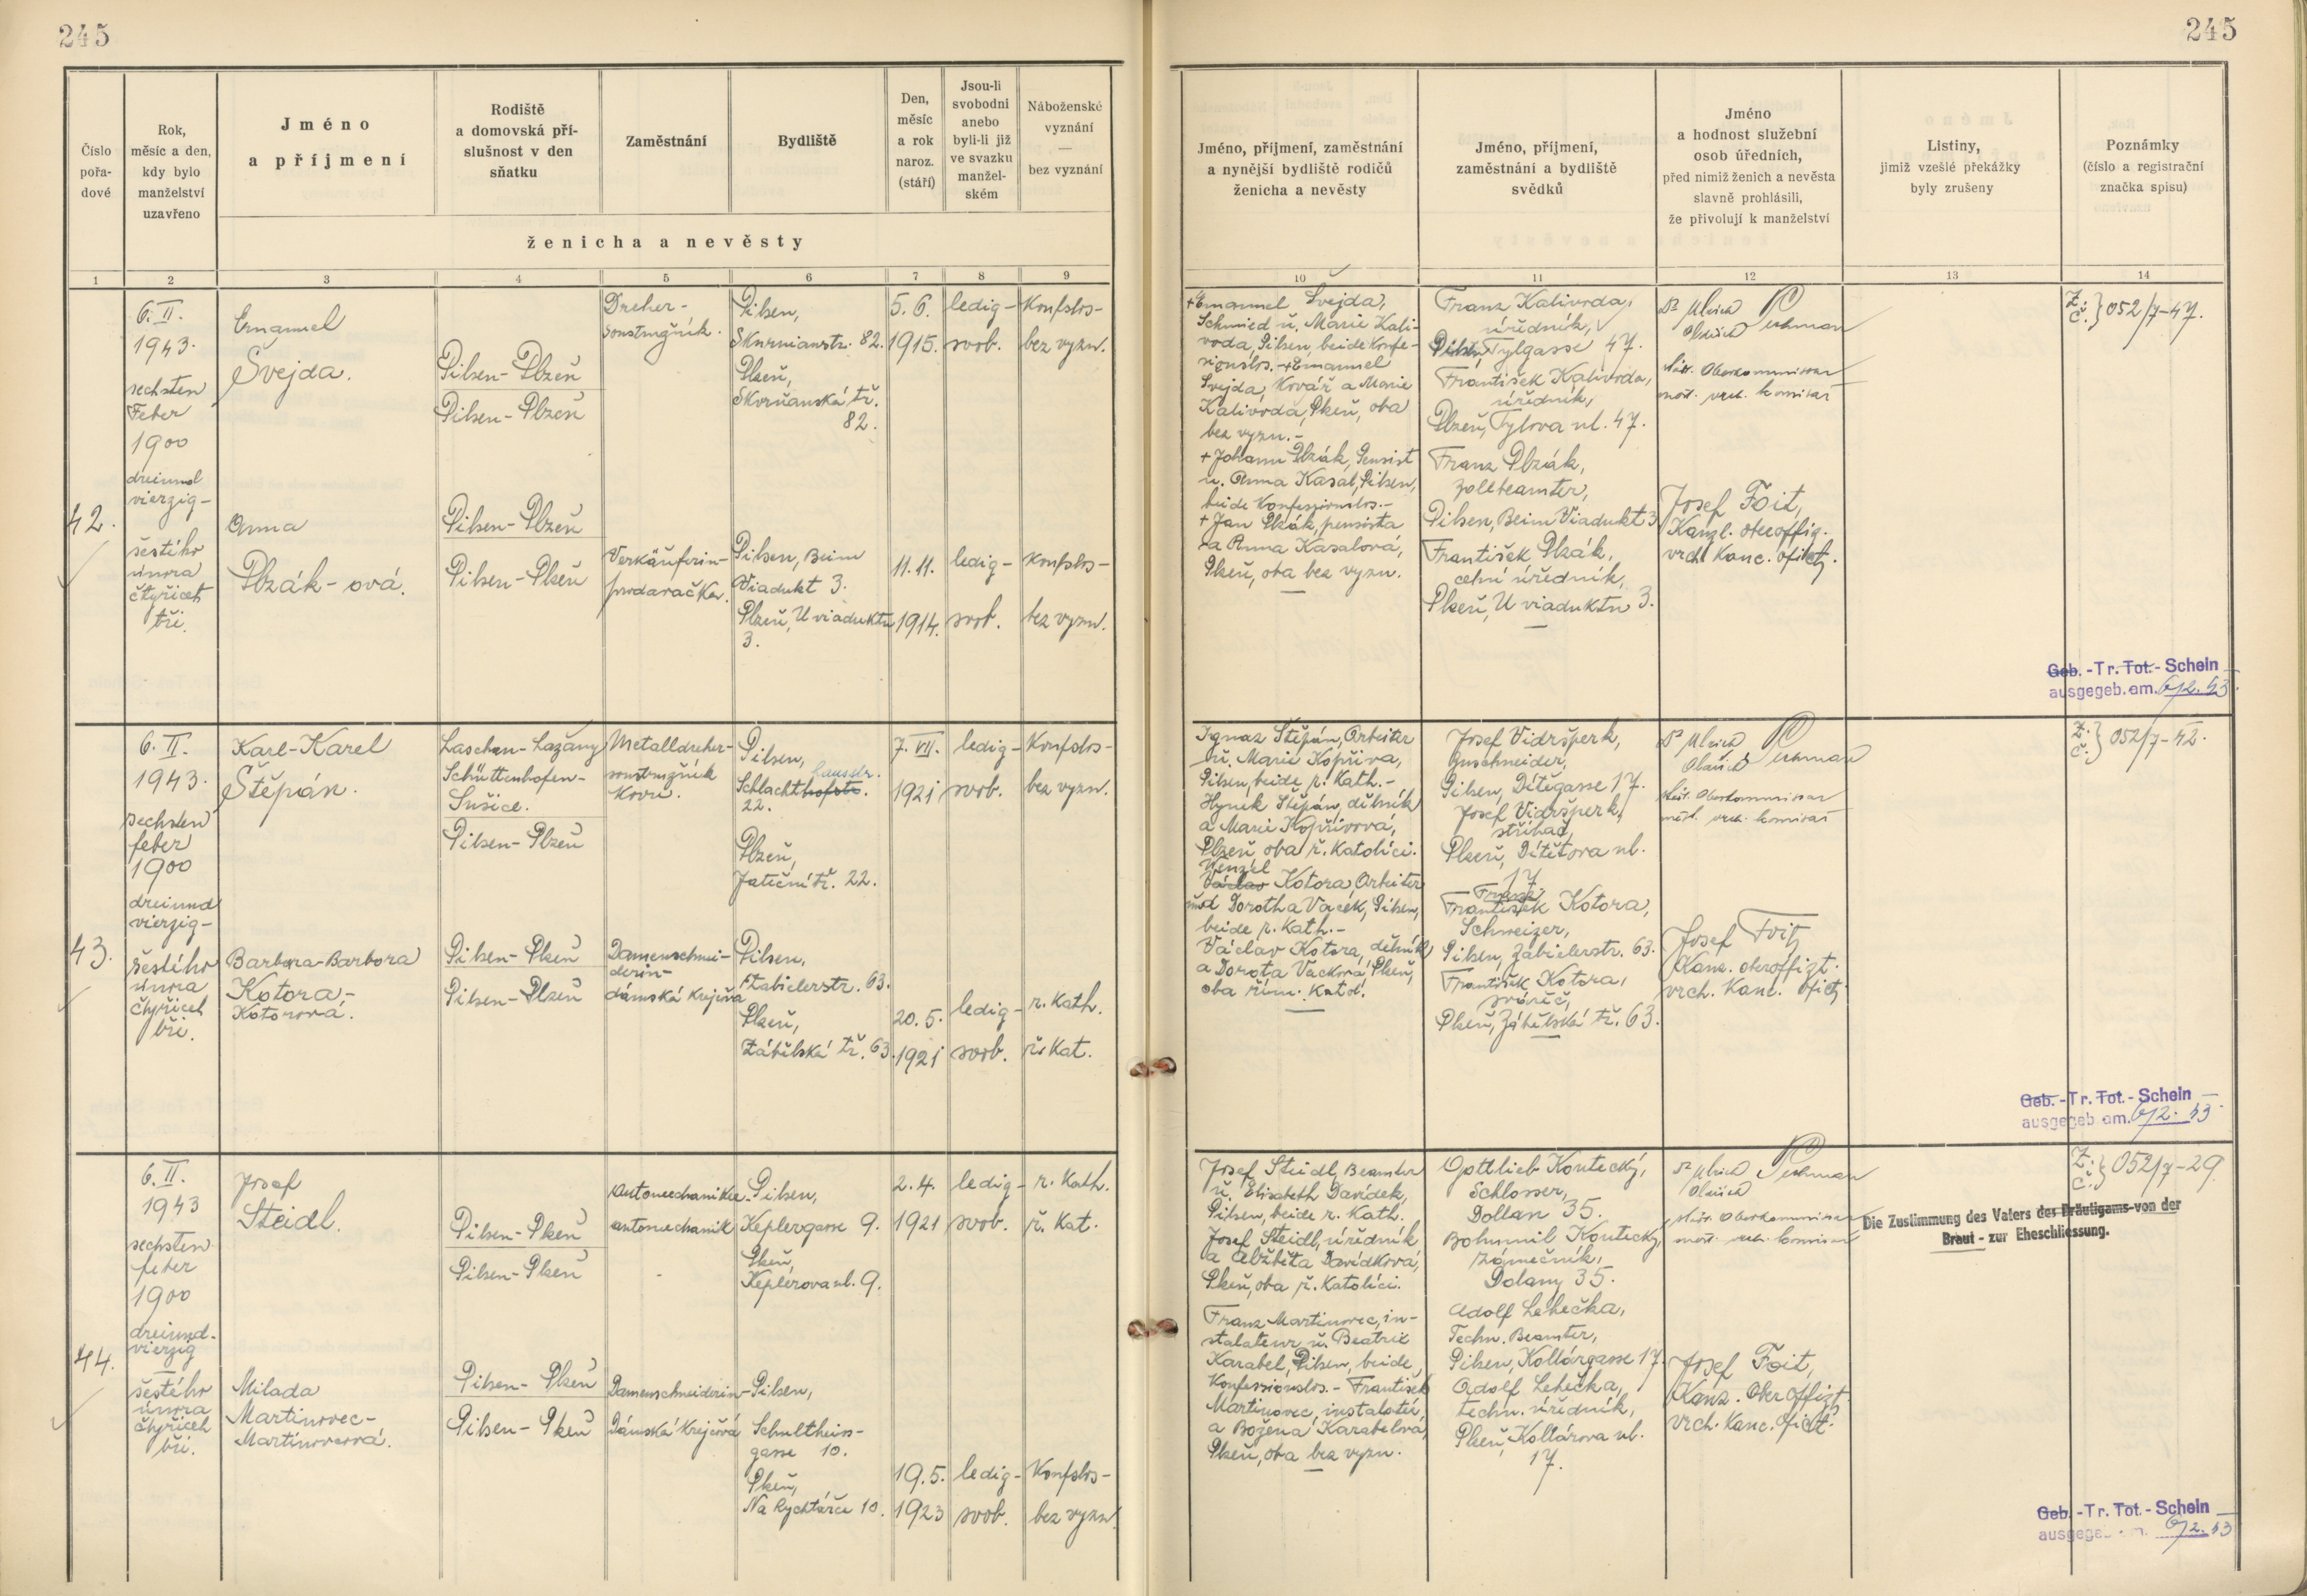 245
245
Číslo
pořa-
dové
Rok,
měsíc a den,
kdy bylo
manželství
uzavřeno
Jméno
a příjmení
Rodiště
a domovská pří-
slušnost v den
sňatku
Zaměstnání
Bydliště
Den,
měsíc
a rok
naroz.
(stáří)
Jsou-li
svobodni
anebo
byli-li již
ve svazku
manžel-
ském
Náboženské
vyznání
—
bez vyznání
ženicha a nevěsty
Jméno, příjmení, zaměstnání
a nynější bydliště rodičů
ženicha a nevěsty
Jméno, příjmení,
zaměstnání a bydliště
svědků
Jméno
a hodnost služební
osob úředních,
před nimiž ženich a nevěsta
slavně prohlásili,
že přivolují k manželství
Listiny,
jimiž vzešlé překážky
byly zrušeny
Poznámky
(číslo a registrační
značka spisu)
1 2 3 4 5 6 7 8 9
10 11 12 13 14
42.
6. II.
1943.
sechsten
Feber
1900
dreiund
vierzig-
šestého
února
čtyřicet
tři.
Emanuel
Švejda.
Pilsen-Plzeň
Pilsen-Plzeň
Dreher-
soustružník.
Pilsen,
Skurnianstr. 82.
Plzeň,
Skvrňanská tř.
82.
5. 6.
1915.
ledig-
svob.
Konfslos-
bez vyzn.
Anna
Plzák-ová.
Pilsen-Plzeň
Pilsen-Plzeň
Verkäuferin-
prodavačka.
Pilsen, Beim
Viadukt 3.
Plzeň, U viaduktu
3.
11. 11.
1914.
ledig-
svob.
Konfslos-
bez vyzn.
+Emanuel Švejda,
Schmied u. Marie Kali-
voda, Pilsen, beide Konfe-
sionslos. -+Emanuel
Švejda, Kovář a Marie
Kalivoda, Plzeň, oba
bez vyzn.-
+ Johann Plzák, Pensist
u. Anna Kasal, Pilsen,
beide Konfessionslos.-
+ Jan Plzák, pensista
a Anna Kasalová,
Plzeň, oba bez vyzn.
Franz Kalivoda,
úředník,
Pilsen, Tylgasse 47.
František Kalivoda,
úředník,
Plzeň, Tylova ul. 47.
Franz Plzák,
Zollbeamter,
Pilsen, Beim Viadukt 3
František Plzák,
celní úředník,
Plzeň, U viaduktu 3.
Dr Ulrich
Oldřich
Städt. Oberkommissar
měst. vrch. komisař
Josef Foit,
Kanzl. oberoffiz.
vrch. Kanc. oficz.
Z.:
č.: } 052/7-47.
Geb.-Tr. Tot.-Schein
ausgegeb. am. 6/2. 43.
43.
6. II.
1943.
sechsten
feber
1900
dreiund
vierzig-
šestého
února
čtyřicet
tři.
Karl-Karel
Štěpán.
Laschan-Lažany
Schüttenhofen-
Sušice.
Pilsen-Plzeň
Metalldreher-
soustružník
kovů.
Pilsen,
hausstr.
Schlachthofstr.
22.
Plzeň,
Jateční tř. 22.
7. VII.
1921
ledig-
svob.
Konfslos-
bez vyzn.
Barbara-Barbora
Kotora-
Kotorová.
Pilsen-Plzeň
Pilsen-Plzeň
Damenschnei-
derin-
dámská krejčová
Pilsen,
Zabielerstr. 63.
Plzeň,
Zábělská tř. 63.
20. 5.
1921
ledig-
svob.
r. Kath.
ř. Kat.
Ignaz Štěpán, Arbeiter
u. Marie Kopřiva,
Pilsen, beide r. Kath.-
Hynek Štěpán, dělník
a Marie Kopřivová,
Plzeň oba ř. Katolíci.
Wenzel
Václav Kotora, Arbeiter
und Dorothea Vacek, Pilsen,
beide r. Kath.-
Václav Kotora, dělník
a Dorota Vacková, Plzeň,
oba řím. Katol.
Josef Vidršperk,
Zuschneider,
Pilsen, Ditěgasse 17.
Josef Vidršperk,
střihač,
Plzeň, Dítětova ul.
17
Franz
František Kotora,
Schweizer,
Pilsen, Zabielerstr. 63.
František Kotora,
svářeč,
Plzeň, Zábělská tř. 63.
Dr Ulrich
Oldřich
Städt. Oberkommissar
měst. vrch. komisař
Josef Foit,
Kanz. oberoffizt.
vrch. Kanc. oficz.
Z.:
č.: } 052/7-42.
Geb.-Tr. Tot.-Schein
ausgegeb. am. 6/2. 43
44.
6. II.
1943
sechsten
feber
1900
dreiund-
vierzig
šestého
února
čtyřicet
tři.
Josef
Steidl.
Pilsen-Plzeň
Pilsen-Plzeň
Automechaniker-
automechanik
Pilsen,
Keplergasse 9.
Plzeň,
Keplerova ul. 9.
2. 4.
1921
ledig-
svob.
r. Kath.
ř. Kat.
Milada
Martinovec-
Martinovcová.
Pilsen-Plzeň
Pilsen-Plzeň
Damenschneiderin-
Dámská krejčová
Pilsen,
Schultheiss-
gasse 10.
Plzeň,
Na Rychtářce 10.
19. 5.
1923
ledig-
svob.
Konfslos-
bez vyzn.
Josef Steidl, Beamter
u. Elisabeth Davídek,
Pilsen, beide r. Kath.
Josef Steidl, úředník
a Alžběta Davídková,
Plzeň, oba ř. Katolíci.
Franz Martinovec, in-
stalateur u. Beatrix
Karabel, Pilsen, beide
Konfessionslos.- František
Martinovec, instalatér,
a Božena Karabelová,
Plzeň, oba bez vyzn.
Gottlieb Koutecký,
Schlosser,
Dollan 35.
Bohumil Koutecký,
zámečník,
Dolany 35.
Adolf Lehečka,
Techn. Beamter,
Pilsen, Kollárgasse 17.
Adolf Lehečka,
techn. úředník,
Plzeň, Kollárova ul.
17.
Dr Ulrich
Oldřich
Städt. Oberkommissar
měst. vrch. komisař
Josef Foit,
Kanz. Oberoffizt.
vrch. Kanc. oficz.
Die Zustimmung des Vaters des Bräutigams-von der
Braut - zur Eheschliessung.
Z.:
č.: } 052/7-29.
Geb.-Tr. Tot.-Schein
ausgegeb. am. 6/2. 43